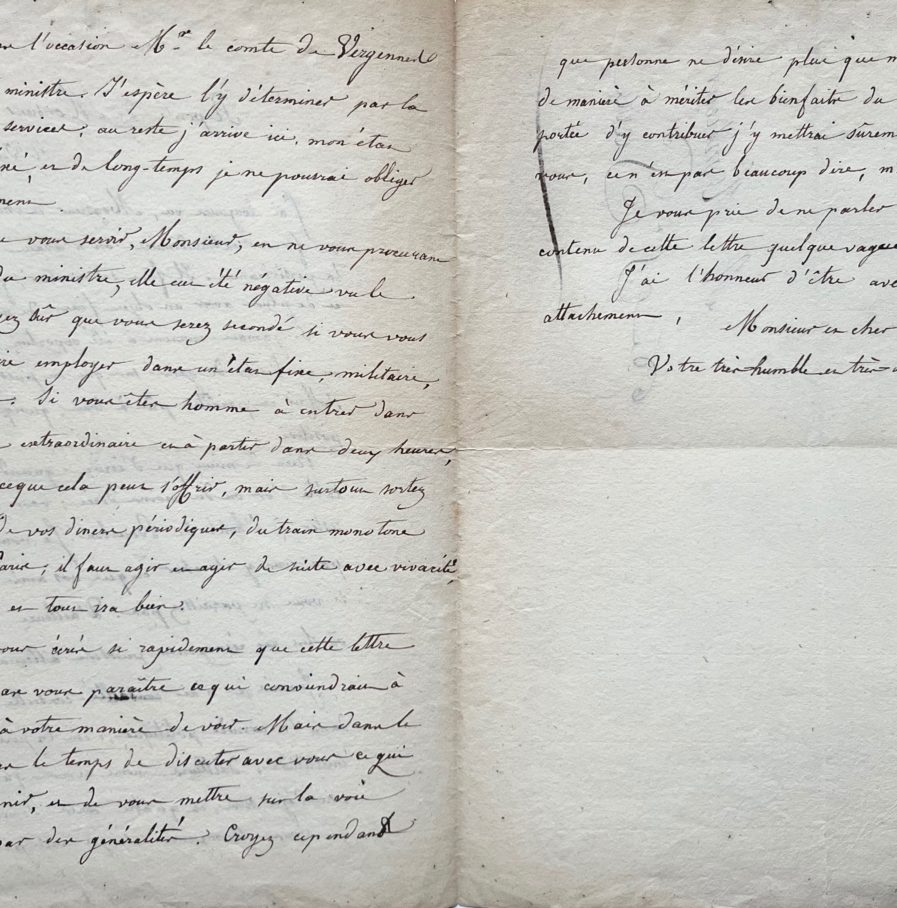 l'occasion Mr. le comte de Vergennes
ministre. J'espère l'y déterminer par la
services; au reste j'arrive ici, mon état
né, et de long-temps je ne pourrai obliger
ment
vous servir, Monsieur, en ne vous procurant
du ministre, elle eut été négative vu le
ez sûr que vous serez secondé si vous vous
re employer dans un état fixe, militaire,
Si vous êtes homme à entrer dans
extraordinaire et à partir dans deux heures,
ce que cela peut s'offrir, mais surtout sortez
de vos diners périodiques, du train monotone
Paris; il faut agir et agir de suite avec vivacité
et tout ira bien.
vous écris si rapidement que cette lettre
pas vous paraître ce qui conviendrait à
à votre manière de voir. Mais dans le
le temps de discuter avec vous ce qui
nir, et de vous mettre sur la voie
par des généralités. Croyez cependant
que personne ne désire plus que m
de manière à mériter les bienfaits du
portée d'y contribuer j'y mettrai sûrem
vous, ce n'est pas beaucoup dire, m
Je vous prie de ne parler
contenu de cette lettre quelque vague
J'ai l'honneur d'être ave
attachement, Monsieur et cher
Votre très-humble et très-